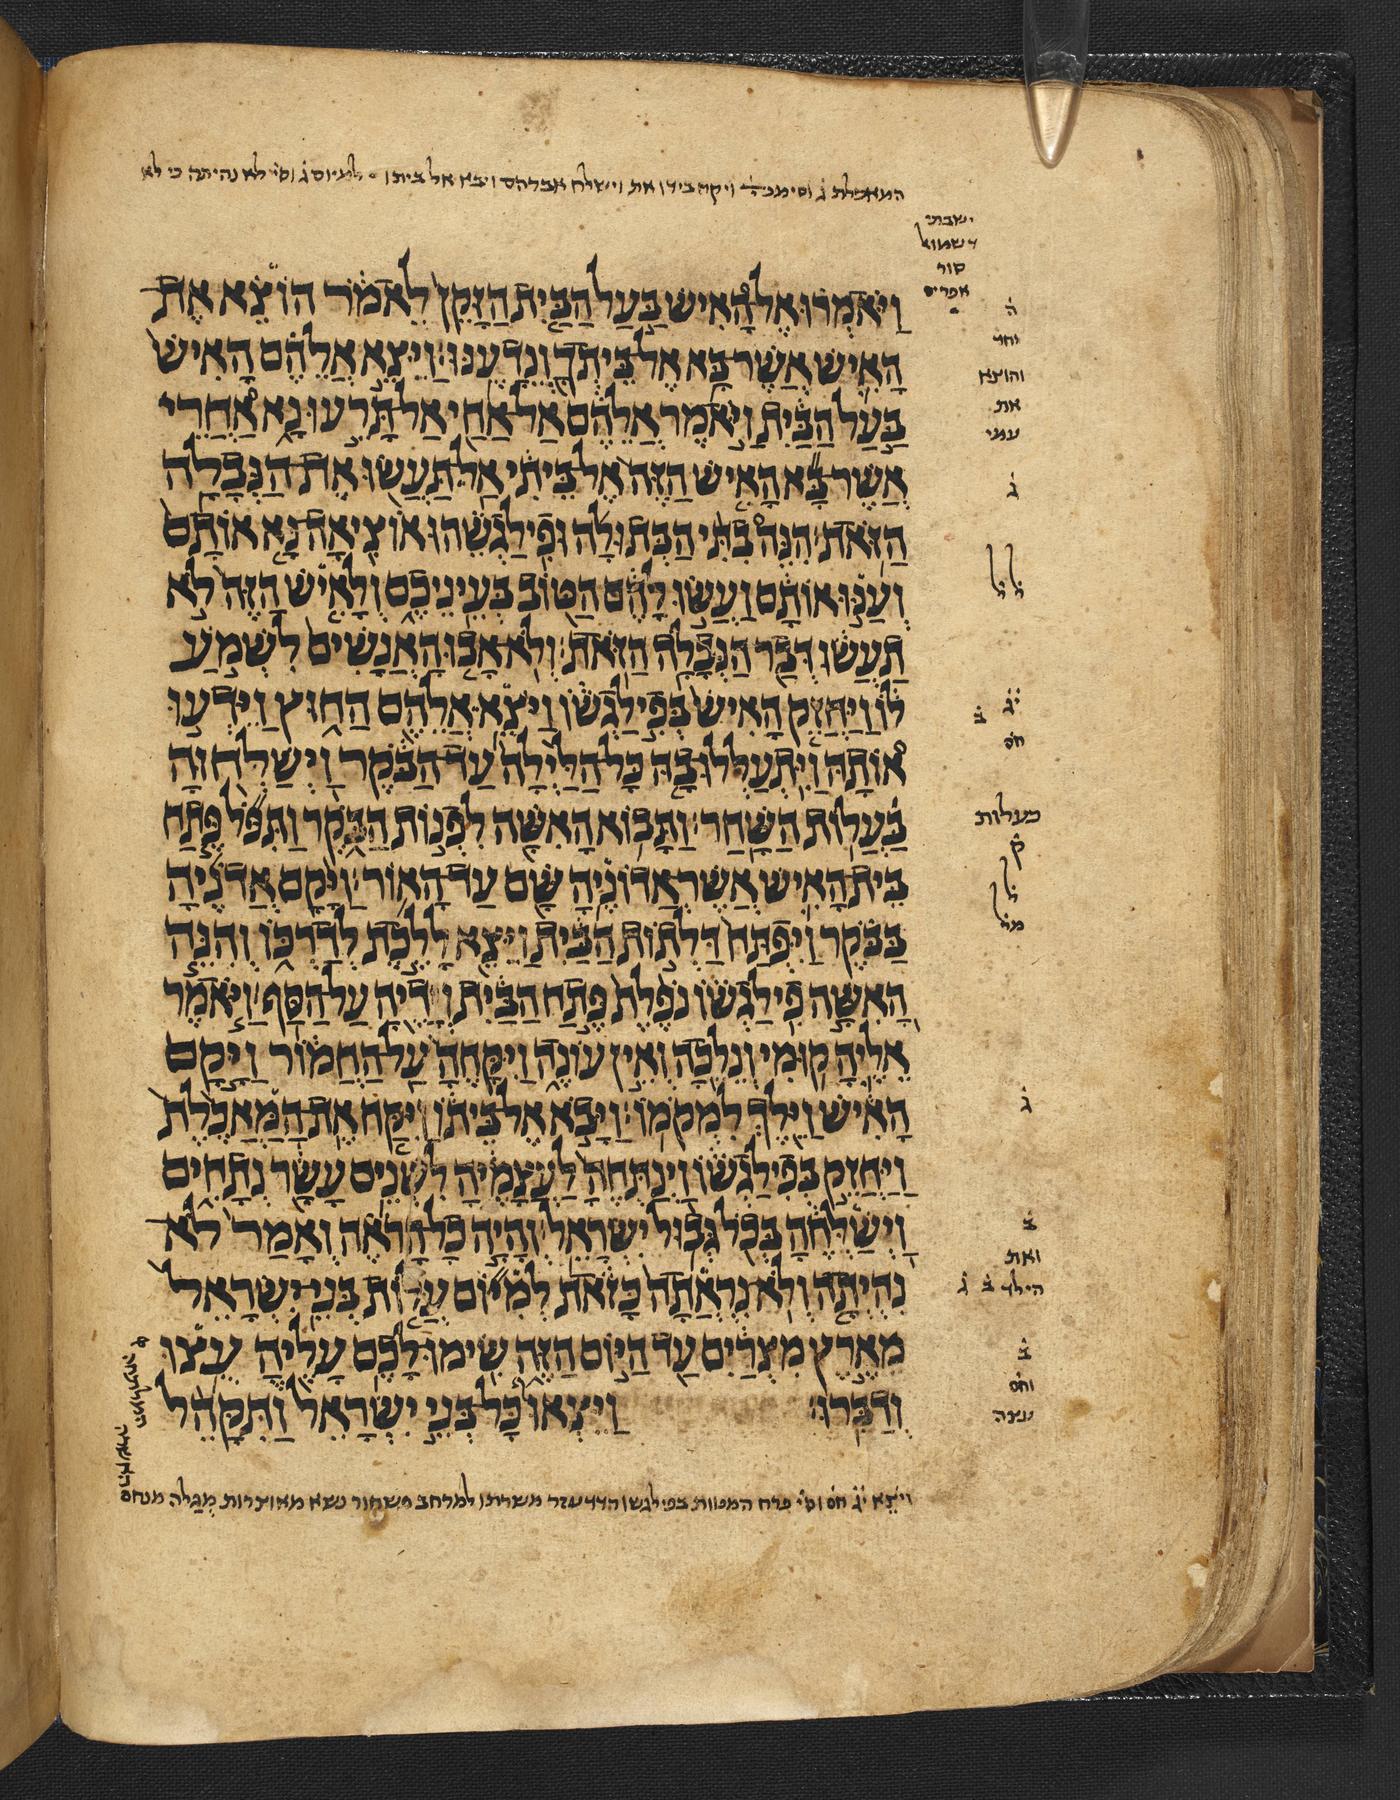 המאכלת ג̇ וסימניה̇ ויקח בידו את וישלח אברהם ויבא אל ביתו ׃ למיום ג̇ וסי̇ לא נהיתה כי לא
ישבתי
דשמואל
סור
אפרים
וַיֹּאמְרוּ אֶל הָאִישׁ בַּעַל הַבַּיִת הַזָּקֵן לֵאמֹר הוֹצֵא אֶת
הָאִישׁ אֲשֶׁר בָּא אֶל בֵּיתְךָ וְנֵדָעֶנּוּ׃ וַיֵּצֵא אֲלֵהֶם הָאִישׁ
בַּעַל הַבַּיִת וַיֹּאמֶר אֲלֵהֶם אַל אַחַי אַל תָּרֵעוּ נָא אַחֲרֵי
אֲשֶׁר בָּא הָאִישׁ הַזֶּה אֶל בֵּיתִי אַל תַּעֲשׂוּ אֶת הַנְּבָלָה
הַזֹּאת׃ הִנֵּה בִתִּי הַבְּתוּלָה וּפִילַגְשֵׁהוּ אוֹצִיאָה נָּא אוֹתָם
וְעַנּוּ אוֹתָם וַעֲשׂוּ לָהֶם הַטּוֹב בְּעֵינֵיכֶם וְלָאִישׁ הַזֶּה לֹא
תַעֲשׂוּ דְּבַר הַנְּבָלָה הַזֹּאת׃ וְלֹא אָבוּ הָאֲנָשִׁים לִשְׁמֹעַ
לוֹ וַיַּחֲזֵק הָאִישׁ בְּפִילַגְשׁוֹ וַיֹּצֵא אֲלֵהֶם הַחוּץ וַיֵּדְעוּ
אוֹתָהּ וַיִּתְעַלְּלוּ בָהּ כָּל הַלַּיְלָה עַד הַבֹּקֶר וַיְשַׁלְּחוּהָ
בַּעֲלוֹת הַשָּׁחַר׃ וַתָּבוֹא הָאִשָּׁה לִפְנוֹת הַבֹּקֶר וַתִּפֹּל פֶּתַח
בֵּית הָאִישׁ אֲשֶׁר אֲדוֹנֶיהָ שָּׁם עַד הָאוֹר׃ וַיָּקָם אֲדֹנֶיהָ
בַּבֹּקֶר וַיִּפְתַּח דַּלְתוֹת הַבַּיִת וַיֵּצֵא לָלֶכֶת לְדַרְכּוֹ וְהִנֵּה
הָאִשָּׁה פִילַגְשׁוֹ נֹפֶלֶת פֶּתַח הַבַּיִת וְיָדֶיהָ עַל הַסַּף׃ וַיֹּאמֶר
אֵלֶיהָ קוּמִי וְנֵלֵכָה וְאֵין עוֹנֶה וַיִּקָּחֶהָ עַל הַחֲמוֹר וַיָּקָם
הָאִישׁ וַיֵּלֶךְ לִמְקֹמוֹ׃ וַיָּבֹא אֶל בֵּיתוֹ וַיִּקַּח אֶת הַמַּאֲכֶלֶת
וַיַּחֲזֵק בְּפִילַגְשׁוֹ וַיְנַתְּחֶהָ לַעֲצָמֶיהָ לִשְׁנֵים עָשָׂר נְתָחִים
וַיְשַׁלְּחֶהָ בְּכֹל גְּבוּל יִשְׂרָאֵל׃ וְהָיָה כָל הָרֹאֶה וְאָמַר לֹא
נִהְיְתָה וְלֹא נִרְאֲתָה כָּזֹאת לְמִיּוֹם עֲלוֹת בְּנֵי יִשְׂרָאֵל
מֵאֶרֶץ מִצְרַיִם עַד הַיּוֹם הַזֶּה שִׂימוּ לָכֶם עָלֶיהָ עֻצוּ
וְדַבֵּרוּ׃ וַיֵּצְאוּ כָּל בְּנֵי יִשְׂרָאֵל וַתִּקָּהֵל
ה̇
וחד
והוצא
את
עמי
ג̇
ל̇ ל̇
י̇ג̇ ב̇
חס̇
כעלות
ק̇
ל̇
מל̇
ג̇
ב̇
ואת
הילד ב̇ ג̇
ב̇
וחס̇
עצה
ויצא י̇ג̇ חס̇ וסי̇ פרח המצות בפילגשו הדד עזר משרתו למרחב פשחור נשא מאוצרות מגלה מנחם